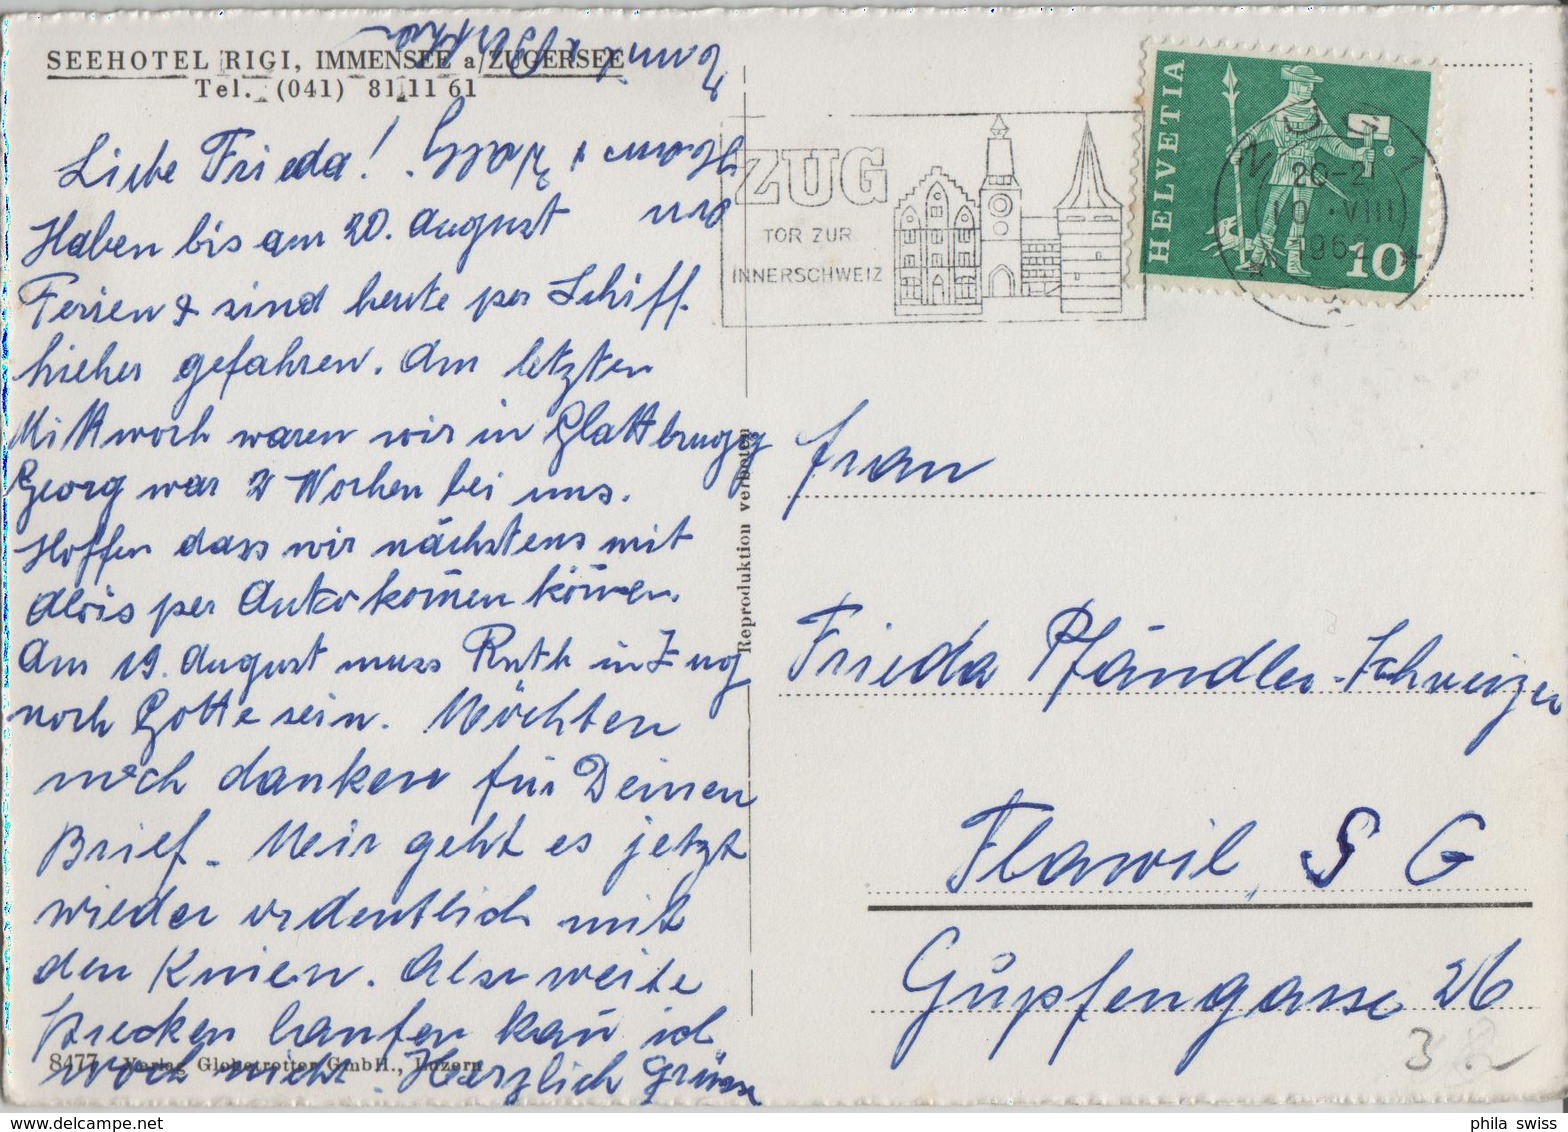 SEEHOTEL RIGI, IMMENSEE a/ZUGERSEE
Tel. (041) 81 11 61
Liebe Frieda!
Haben bis am 20. August
Ferien & sind heute per Schiff
hieher gefahren. Am letzten
Mittwoch waren wir in Glattbrugg
Georg war 2 Wochen bei uns.
Hoffen dass wir nächstens mit
Alois per Auto kom̄en kön̄en.
Am 19. August muss Ruth in Zug
noch Gotte sein. Möchten
noch danken für Deinen
Brief. Mir geht es jetzt
wieder ordentlich mit
den Knien. Also weite
Strecken laufen kan̄ ich
noch nicht. Herzlich Grüsse
von
8477 Verlag Globetrotter GmbH., Luzern
Reproduktion verboten
ZUG
TOR ZUR
INNERSCHWEIZ
HELVETIA
10
20-2
10.VIII
1962
Frau
Frieda Pfändler-Schweizer
Flawil, S G
Güpfengasse 26
3
phila swiss